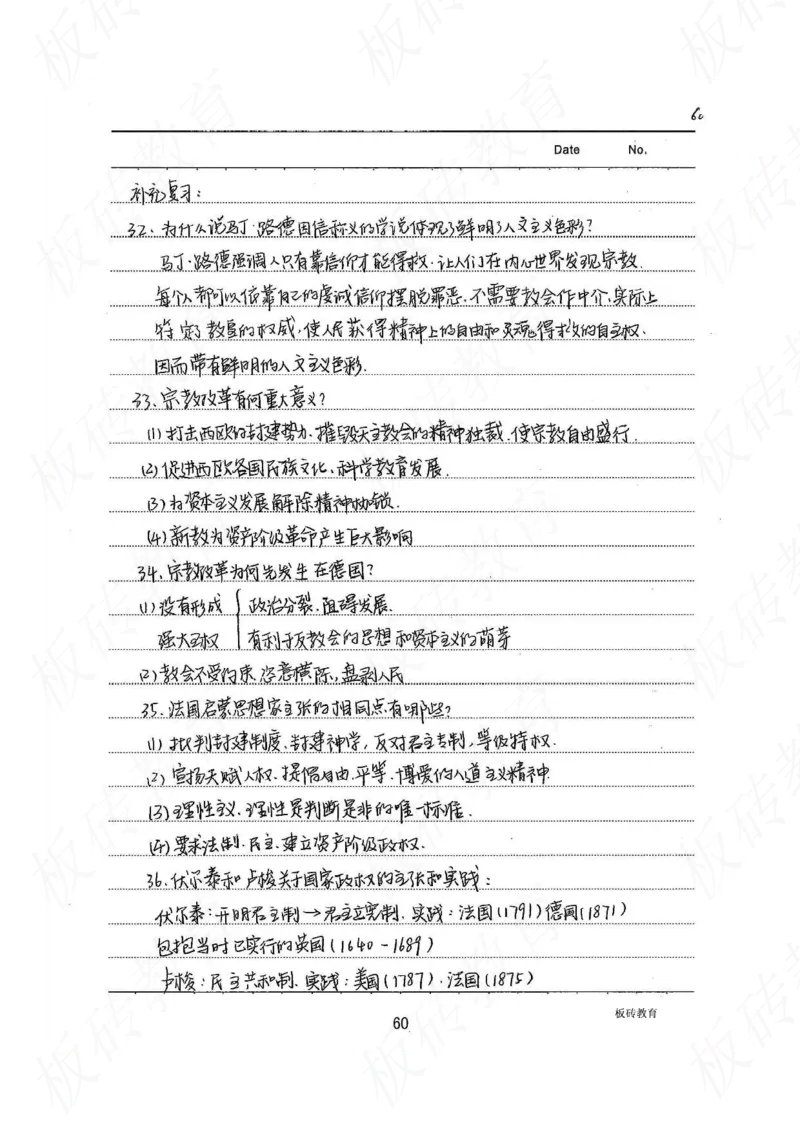 60
Date No.
补充复习:
32、为什么说马丁·路德因信称义的学说体现了鲜明了人文主义色彩?
马丁·路德强调人只有靠信仰才能得救.让人们在内心世界发现宗教.
每个人都可以依靠自己的虔诚信仰摆脱罪恶.不需要教会作中介.实际上
否定了教皇的权威.使人民获得精神上的自由和灵魂得救的自主权.
因而带有鲜明的人文主义色彩.
33、宗教改革有何重大意义?
(1)打击西欧的封建势力.摧毁天主教会的精神独裁.使宗教自由盛行.
(2)促进西欧各国民族文化、科学教育发展.
(3)为资本主义发展解除精神枷锁.
(4)新教为资产阶级革命产生巨大影响
34、宗教改革为何先发生在德国?
(1)没有形成 政治分裂.阻碍发展.
强大王权 有利于反教会的思想和资本主义的萌芽
(2)教会不受约束,恣意横陈,盘剥人民
35、法国启蒙思想家主张的相同点有哪些?
(1)批判封建制度、封建神学,反对君主专制,等级特权.
(2)宣扬天赋人权、提倡自由、平等、博爱的人道主义精神.
(3)理性主义、理性是判断是非的唯一标准.
(4)要求法制、民主、建立资产阶级政权.
36、伏尔泰和卢梭关于国家政权的主张和实践:
伏尔泰:开明君主制→君主立宪制.实践:法国(1791)德国(1871)
包括当时已实行的英国(1640-1689)
卢梭:民主共和制.实践:美国(1787).法国(1875)
板砖教育
60